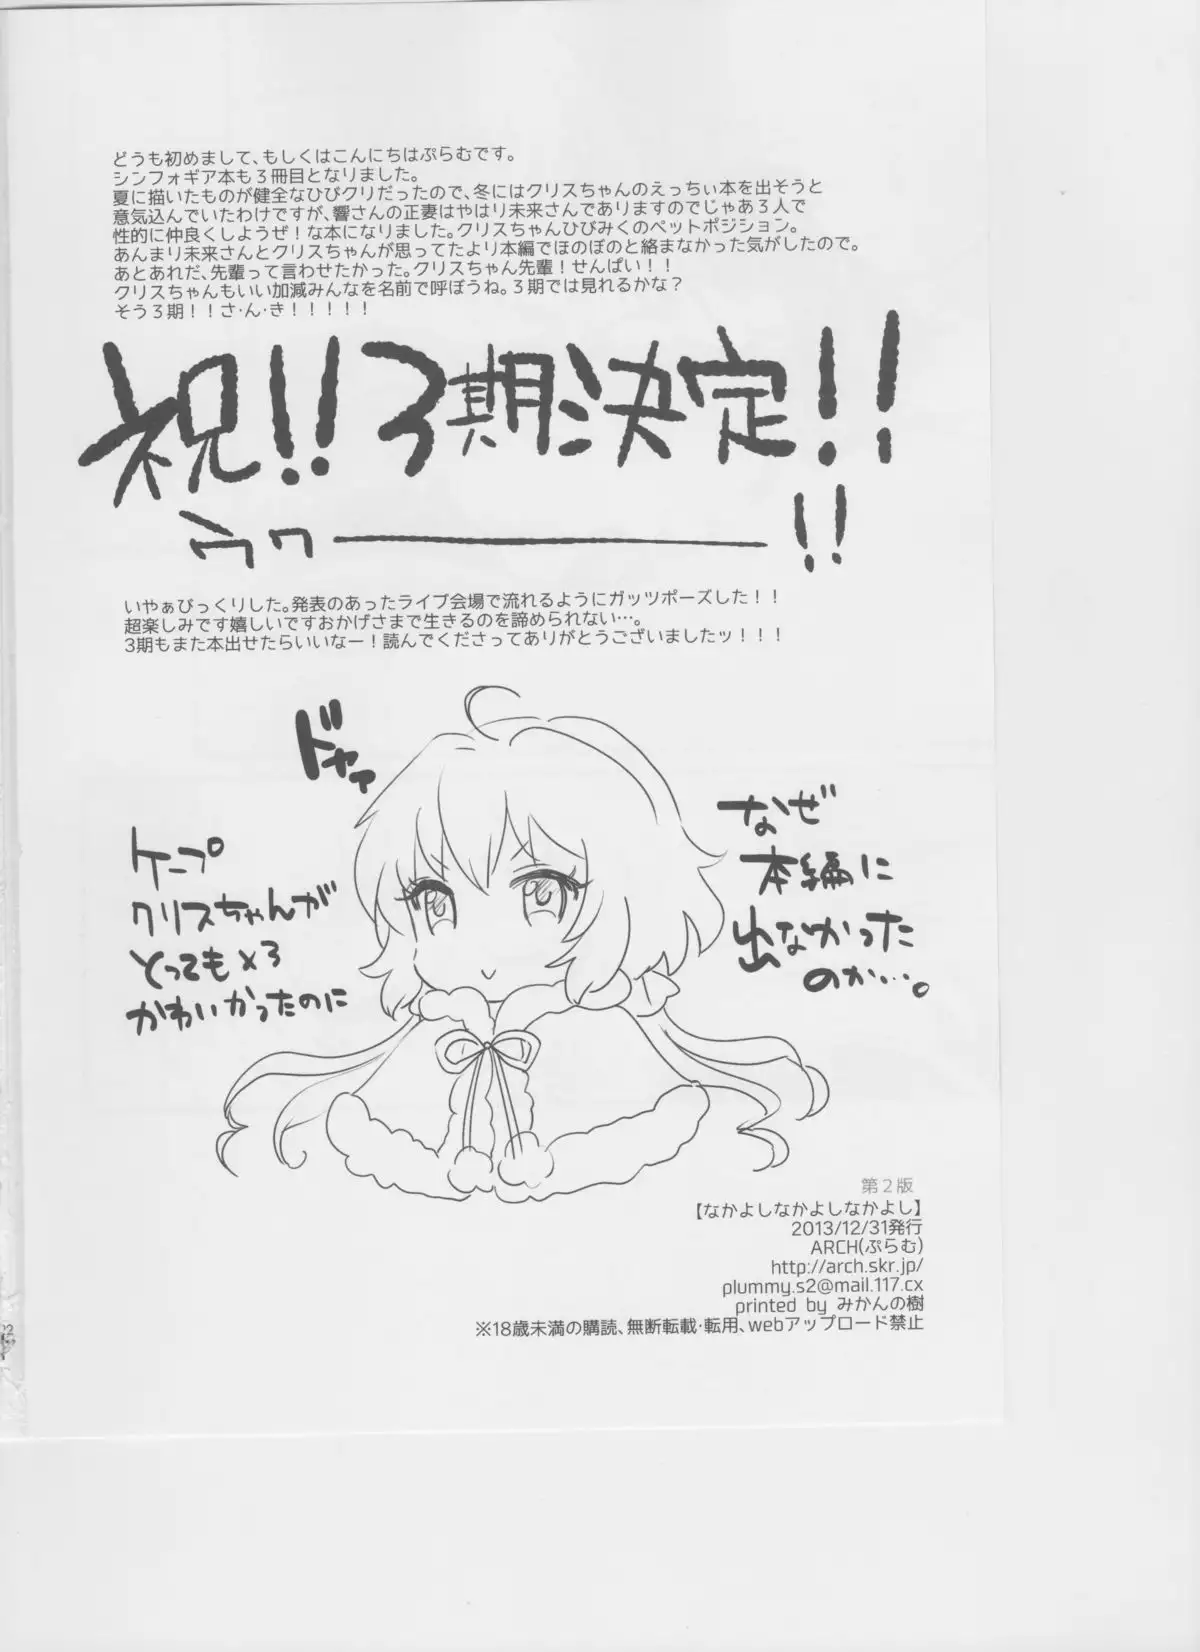 どうも初めまして、もしくはこんにちはぷらむです。
シンフォギア本も３冊目となりました。
夏に描いたものが健全なひびクリだったので、冬にはクリスちゃんのえっちぃ本を出そうと
意気込んでいたわけですが、響さんの正妻はやはり未来さんでありますのでじゃあ３人で
性的に仲良くしようぜ！な本になりました。クリスちゃんひびみくのペットポジション。
あんまり未来さんとクリスちゃんが思ってたより本編でほのぼのと絡まなかった気がしたので。
あとあれだ、先輩って言わせたかった。クリスちゃん先輩！せんぱい！！
クリスちゃんもいい加減みんなを名前で呼ぼうね。３期では見れるかな？
そう３期！！さ・ん・き！！！！！
祝!! 3期決定!!
ウワ――――!!
いやぁびっくりした。発表のあったライブ会場で流れるようにガッツポーズした！！
超楽しみです嬉しいですおかげさまで生きるのを諦められない…。
3期もまた本出せたらいいなー！読んでくださってありがとうございましたッ！！！
ドヤァ
ケープ
クリスちゃんが
とっても×3
かわいかったのに
なぜ
本編に
出なかった
のか…。
第２版
【なかよしなかよしなかよし】
2013/12/31発行
ARCH(ぷらむ)
http://arch.skr.jp/
plummy.s2@mail.117.cx
printed by みかんの樹
※18歳未満の購読、無断転載・転用、webアップロード禁止